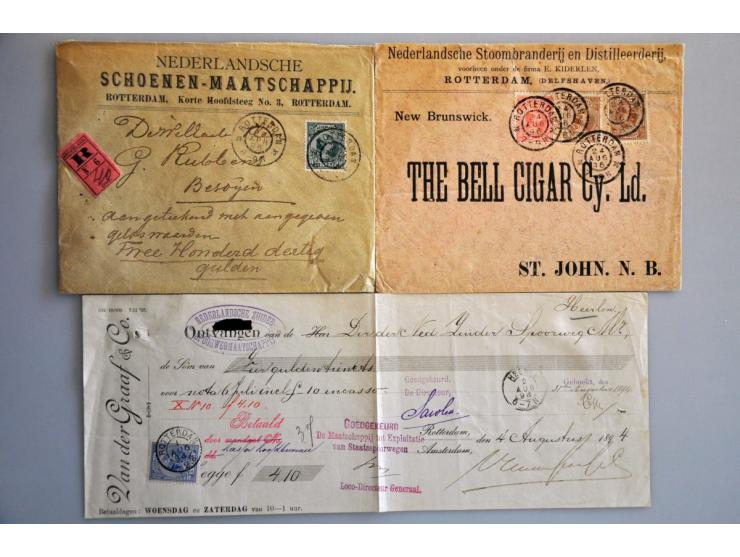 NEDERLANDSCHE
SCHOENEN-MAATSCHAPPIJ.
ROTTERDAM, Korte Hoofdsteeg No. 3, ROTTERDAM.
R
ROTTERDAM
G. Ribbens
Besoijen
aangeteekend met aangegeven
geldswaarden
Twee Honderd dertig
gulden
Nederlandsche Stoombranderij en Distilleerderij,
voorheen onder de firma E. KIDERLEN,
ROTTERDAM, (DELFSHAVEN.)
ROTTERDAM
24
AUG
96
ROTTERDAM
ROTTERDAM
24
AUG
96
New Brunswick.
THE BELL CIGAR Cy. Ld.
ST. JOHN. N. B.
Van der Graaf & Co.
NEDERLANDSCHE ZUIDER
SPOORWEGMAATSCHAPPIJ
Heerlen
Ontvangen van de Heer Dir der Ned Zuider Spoorweg Mij,
de Som van Vier gulden tien cts
voor nota 6 pl. incl. f -10 incasso
X No 10 f 4.10
Goedgekeurd.
De Directeur,
Geboekt, den
31 Augustus 1894
AUG
94
6-7N
Betaald
door
GOEDGEKEURD
De Maatschappij tot Exploitatie
van Staatsspoorwegen
Loco-Directeur Generaal.
Rotterdam,
Amsterdam,
den 4 Augustus 1894
ROTTERDAM
Zegge f 4.10
Betaaldagen: WOENSDAG en ZATERDAG van 10—1 uur.